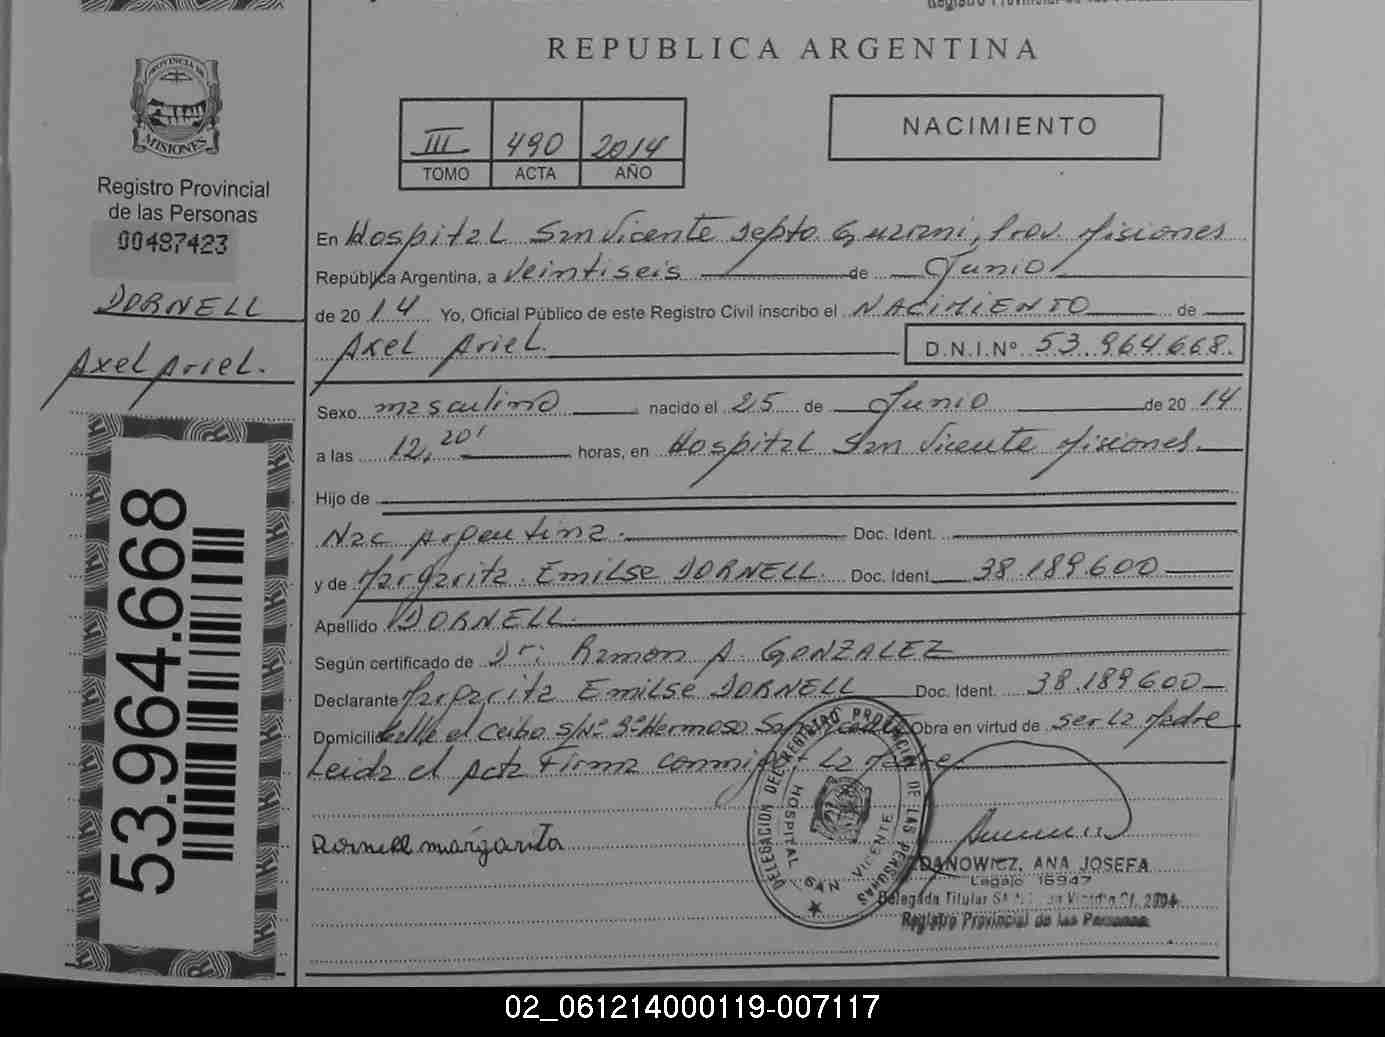 REPUBLICA ARGENTINA
PROVINCIA DE
MISIONES
Registro Provincial
de las Personas
00487423
DORNELL
Axel Ariel.
53.964.668
III 490 2014
TOMO ACTA AÑO
NACIMIENTO
En Hospital San Vicente Depto Guarani, Prov. Misiones
República Argentina, a Veintiseis de Junio
de 2014 Yo, Oficial Público de este Registro Civil inscribo el NACIMIENTO de
Axel Ariel. D.N.I.Nº 53.964.668.
Sexo masculino nacido el 25 de Junio de 2014
a las 12,20' horas, en Hospital San Vicente Misiones.
Hijo de
Nac Argentina. Doc. Ident.
y de Margarita Emilse DORNELL. Doc. Ident. 38.189.600
Apellido DORNELL.
Según certificado de Dr. Ramon A. GONZALEZ
Declarante Margarita Emilse DORNELL Doc. Ident. 38.189.600
Domicilio Calle el Ceibo s/Nº Bº Hermoso San Vicente Obra en virtud de ser la Madre
Leida el Acta Firma conmigo la Madre
Dornell margarita
DELEGACION DEL REGISTRO PROVINCIAL DE LAS PERSONAS
HOSPITAL SAN VICENTE
DANOWICZ, ANA JOSEFA
Legajo 16947
Delegada Titular
Registro Provincial de las Personas
02_061214000119-007117